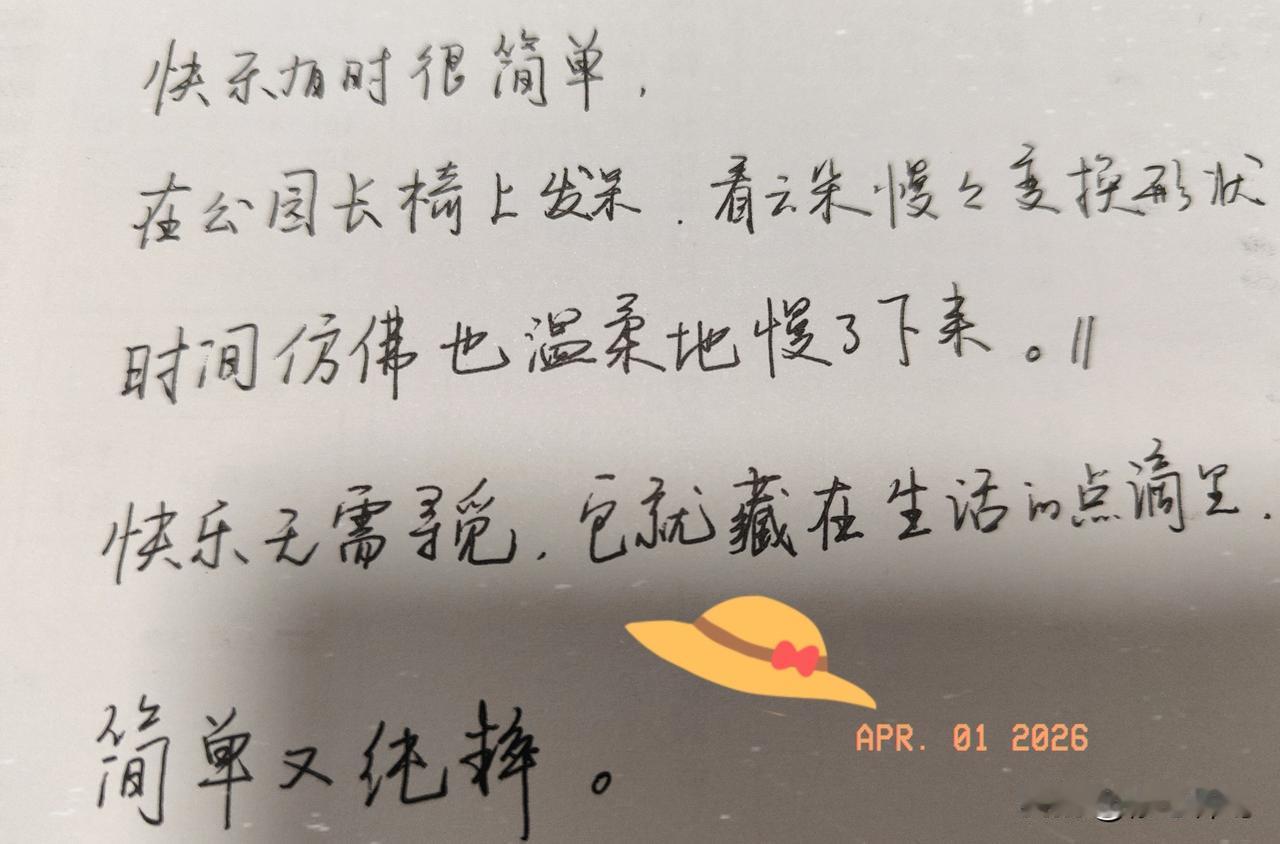 快乐有时很简单，
在公园长椅上发呆，看云朵慢々变换形状
时间仿佛也温柔地慢了下来。||
快乐无需寻觅，它就藏在生活的点滴里，
简单又纯粹。
APR. 01 2026